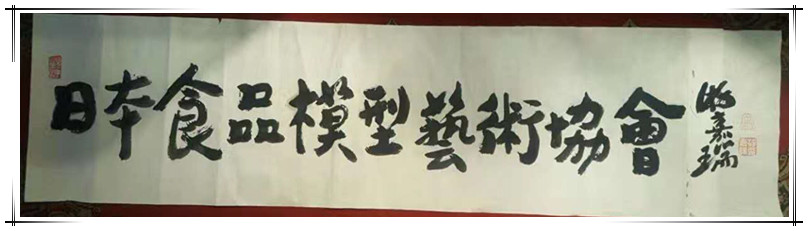 日本食品模型藝術協會
嘉瑞